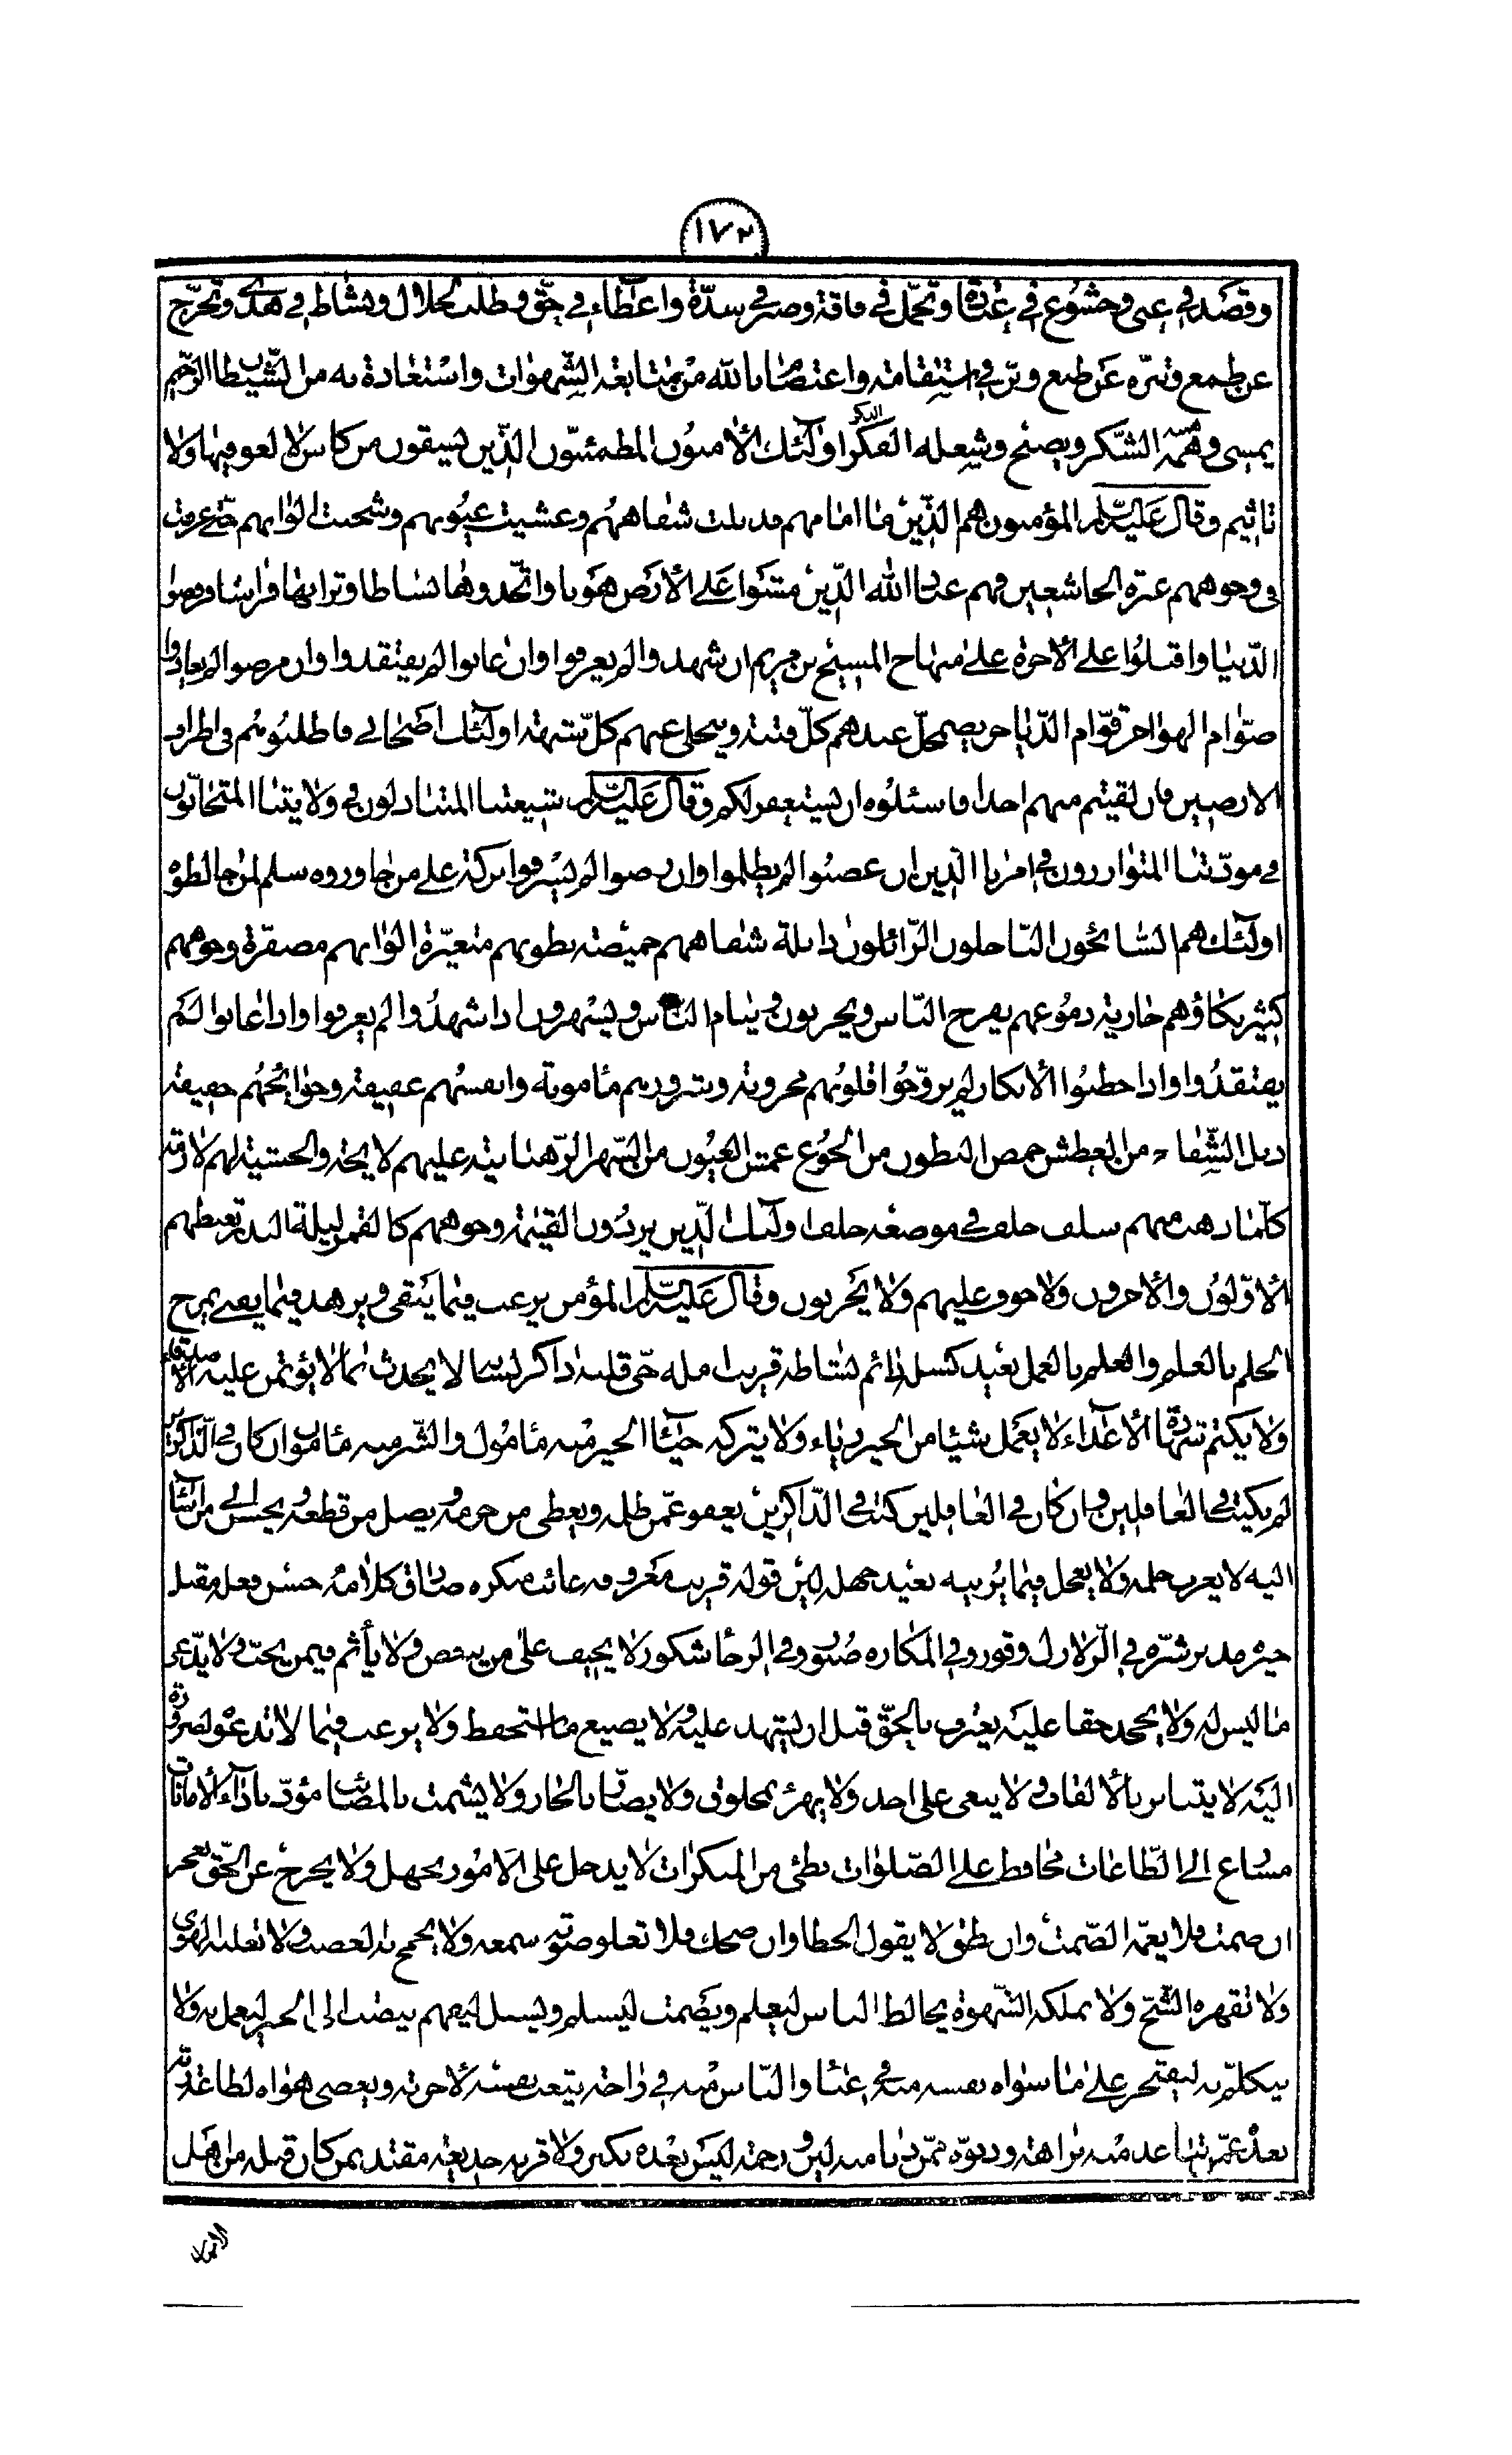 ١٧٢
وقصد في غنى وخشوع في عبادة وتجمّل في فاقة وصبر في شدّة واعطاء في حقّ وطلب لحلال ونشاط في هدى وتحرّج
عن طمع وتنزّه عن طبع وبرّ في استقامة واعتصام بالله من متابعة الشّهوات واستعاذة به من الشّيطان الرّجيم
يمسي وهمّه الشّكر ويصبح وشغله الفكر اولئك الأمنون المطمئنّون الّذين يسقون من كاس لا لغو فيها ولا
تاثيم وقال عليه السّلام المؤمنون هم الّذين عرفوا ما امامهم فذبلت شفاههم وغشيت عيونهم وشحبت الوانهم حتّى عرفت
في وجوههم غبرة الخاشعين فهم عباد الله الّذين مشوا على الأرض هونا واتّخذوها بساطا وترابها فراشا فرفضوا
الدّنيا واقبلوا على الأخرة على منهاج المسيح بن مريم ان شهدوا لم يعرفوا وان غابوا لم يفتقدوا وان مرضوا لم يعادوا
صوّام الهواجر قوّام الدّياجر يضمحلّ عندهم كلّ فتنة وينجلي عنهم كلّ شبهة اولئك اصحابي فاطلبوهم في اطراف
الارضين فان لقيتم منهم احدا فاسئلوه ان يستغفر لكم وقال عليه السّلام شيعتنا المتباذلون في ولايتنا المتحابّون
في مودّتنا المتوازرون في امرنا الّذين ان غضبوا لم يظلموا وان رضوا لم يسرفوا بركة على من جاوروه سلم لمن خالطوه
اولئك هم السّائحون النّاحلون الزّائلون ذابلة شفاههم خميصة بطونهم متغيّرة الوانهم مصفرّة وجوههم
كثير بكاؤهم جارية دموعهم يفرح النّاس ويحزنون وينام النّاس ويسهرون اذا شهدوا لم يعرفوا واذا غابوا لم
يفتقدوا واذا خطبوا الأبكار لم يزوّجوا قلوبهم محزونة وشرورهم مأمونة وانفسهم عفيفة وحوائجهم خفيفة
ذبل الشّفاه من العطش خمص البطون من الجوع عمش العيون من السّهر الرّهبانية عليهم لايحة والخشية لهم لازمة
كلّما ذهب منهم سلف خلف في موضعه خلف اولئك الّذين يردون القيمة وجوههم كالقمر ليلة البدر تغبطهم
الأوّلون والأخرون ولا خوف عليهم ولا يحزنون وقال عليه السّلام المؤمن يرغب فيما يبقى ويزهد فيما يفنى يمزج
الحلم بالعلم والعلم بالعمل بعيد كسله دائم نشاطه قريب امله حيّ قلبه ذاكر لسانه لا يحدث بما لا يؤتمن عليه الأصدقاء
ولا يكتم شهادة الأعداء لا يعمل شيئا من الخير رياء ولا يتركه حياء الخير منه مأمول والشّر منه مأمون ان كان في الذّاكرين
لم يكتب في الغافلين وان كان في الغافلين كتب في الذّاكرين يعفو عمّن ظلمه ويعطي من حرمه ويصل من قطعه يحسن الى من اساء
اليه لا يعزب حلمه ولا يعجل فيما يريبه بعيد جهله ليّن قوله قريب معروفه غائب منكره صادق كلامه حسن فعله مقبل
خيره مدبر شرّه في الزّلازل وقور وفي المكاره صبور وفي الرخا شكور لا يحيف على من يبغض ولا يأثم فيمن يحبّ ولا يدّعى
ما ليس له ولا يجحد حقا عليه يعترف بالحقّ قبل ان يشهد عليه ولا يضيع ما استحفظ ولا يرغب فيما لا تدعو ضرورة
اليه لا يتنابز بألالقاب ولا يبغى على احد ولا يهزء بمخلوق ولا يضارّ بالجار ولا يشمت بالمصائب مؤدّ باداء الأمانات
مسارع الى الطّاعات محافظ على الصّلوات بطئ من المنكرات لا يدخل على الامور بجهل ولا يخرج عن الحقّ بعجز
ان صمت فلا يغمّه الصّمت وان نطق لا يقول الخطا وان ضحك فلا تعلو صوته سمعه ولا يجمح به الغضب ولا تغلبه الهوى
ولا تقهره الشّح ولا تملكه الشّهوة يخالط الناس ليعلم ويصمت ليسلم ويسئل ليفهم ينصت الى الخير ليعمل به ولا
يتكلّم به ليفتخر على ما سواه نفسه منه في عناء والنّاس منه في راحة يتعب نفسه لأخرته ويعصى هواه لطاعة ربّه
بعده عمّن تباعد منه نزاهة ودنوّه ممّن دنا منه لين ورحمة ليس بعده بكبر ولا قربه خديعة مقتد بمن كان قبله من اهل